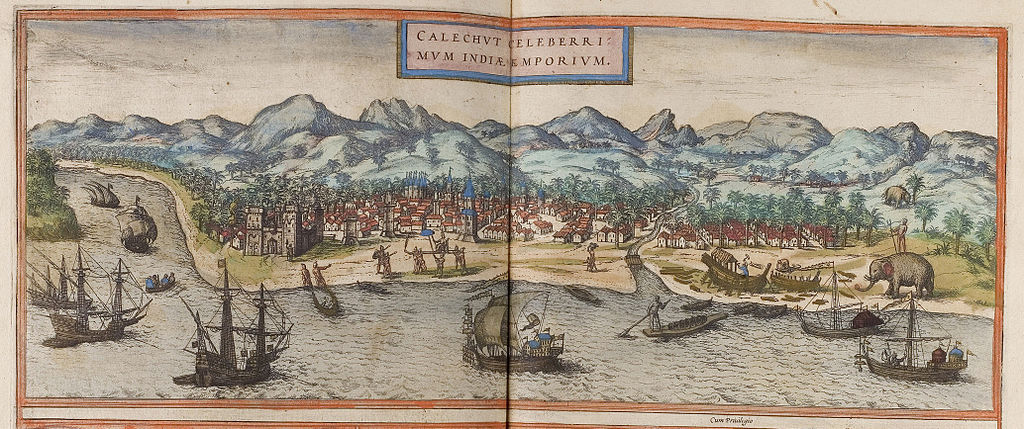 CALECHVT CELEBERRI:
MVM INDIÆ EMPORIVM.
Cum Priuilegio